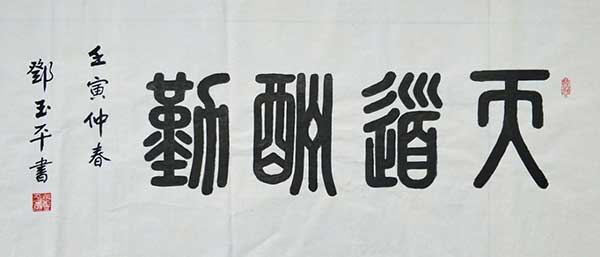 天道酬勤
壬寅仲春
鄧玉平書